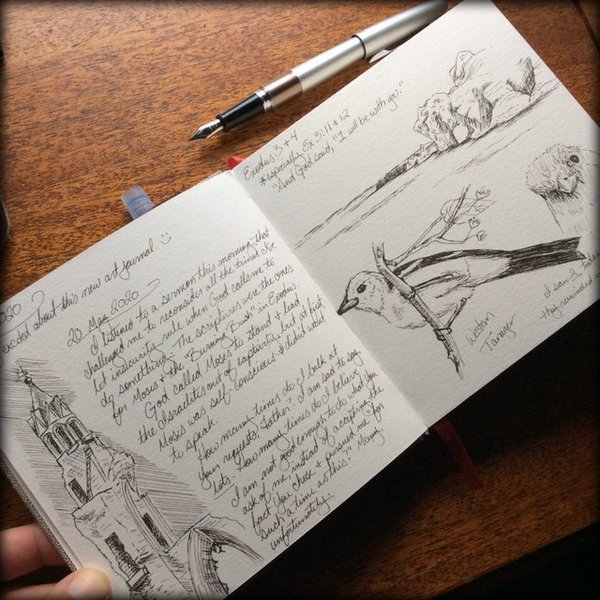 2020
excited about this new art journal. :)
20 May 2020
I listened to a sermon this morning that
challenged me to reconsider all the times I've
let insecurity rule when God calls me to
do something. The scriptures were the ones
for Moses & the "Burning Bush" in Exodus.
God called Moses to stand & lead
the Israelites out of captivity, but at first
Moses was self-conscious & didn't want
to speak.
How many times do I balk at
Your requests, Father? I am sad to say,
lots. "How many times do I believe
I am not good enough to do what you
ask of me, instead of accepting the
fact you chose & pursued me for
such a time as this?" Many,
unfortunately...
Exodus 3 & 4
*especially Ex 3:11 & 12
"And God said, "I will be with you."
Western
Tanager
I saw 3 today
they reminded